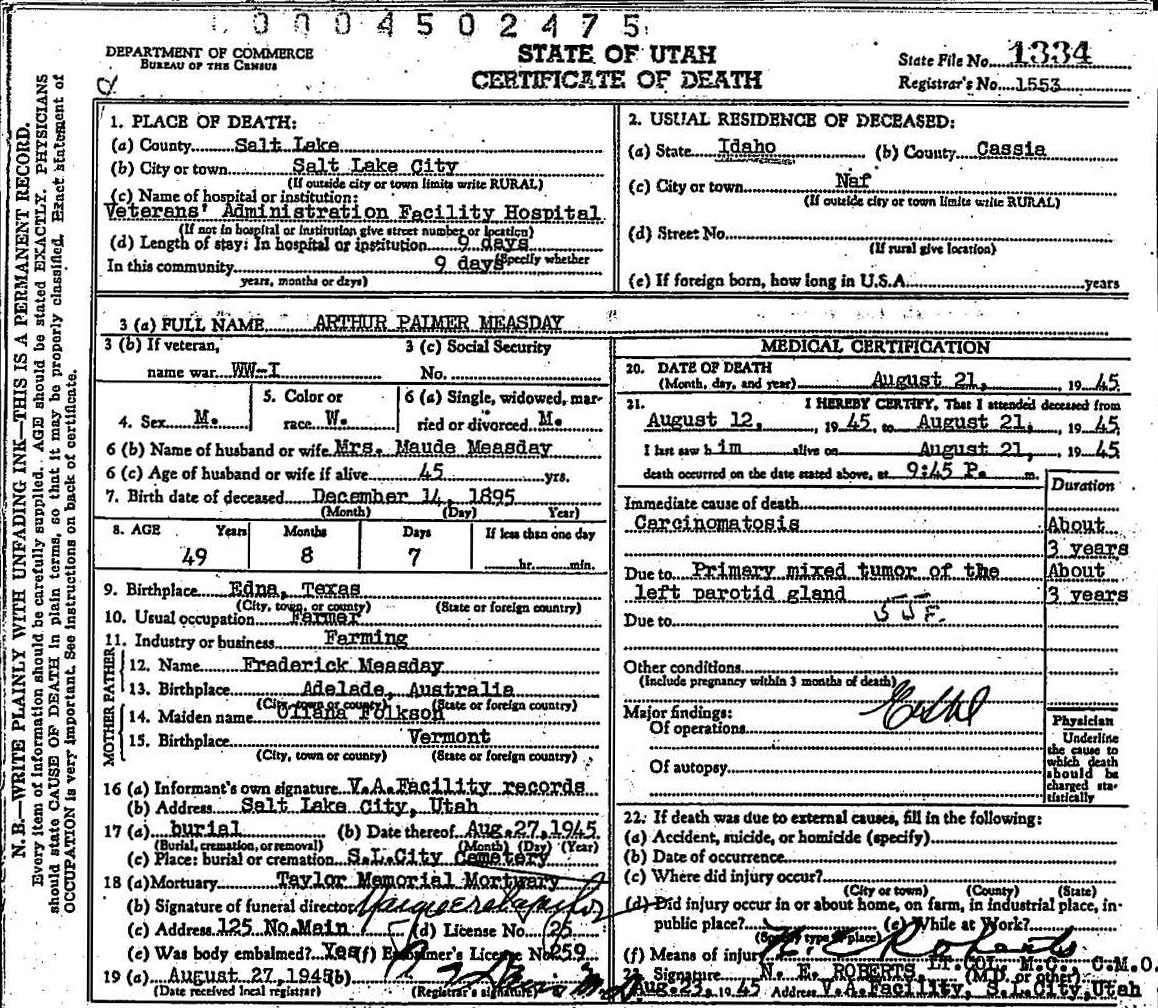 0004502475
DEPARTMENT OF COMMERCE
BUREAU OF THE CENSUS
STATE OF UTAH
CERTIFICATE OF DEATH
State File No. 1334
Registrar's No. 1553
N. B.—WRITE PLAINLY WITH UNFADING INK—THIS IS A PERMANENT RECORD.
Every item of information should be carefully supplied. AGE should be stated EXACTLY. PHYSICIANS
should state CAUSE OF DEATH in plain terms, so that it may be properly classified. Exact statement of
OCCUPATION is very important. See instructions on back of certificate.
1. PLACE OF DEATH:
(a) County Salt Lake
(b) City or town Salt Lake City
(If outside city or town limits write RURAL)
(c) Name of hospital or institution:
Veterans' Administration Facility Hospital
(If not in hospital or institution give street number or location)
(d) Length of stay: In hospital or institution 9 days
(Specify whether
In this community 9 days
years, months or days)
2. USUAL RESIDENCE OF DECEASED:
(a) State Idaho (b) County Cassia
(c) City or town Naf
(If outside city or town limits write RURAL)
(d) Street No.
(If rural give location)
(e) If foreign born, how long in U.S.A. years
3 (a) FULL NAME ARTHUR PALMER MEASDAY
3 (b) If veteran,
name war WW-I
3 (c) Social Security
No.
4. Sex M.
5. Color or
race W.
6 (a) Single, widowed, mar-
ried or divorced M.
6 (b) Name of husband or wife Mrs. Maude Measday
6 (c) Age of husband or wife if alive 45 yrs.
7. Birth date of deceased December 14, 1895
(Month) (Day) Year)
8. AGE Years Months Days If less than one day
49 8 7 hr. min.
9. Birthplace Edna, Texas
(City, town, or county) (State or foreign country)
10. Usual occupation Farmer
11. Industry or business Farming
FATHER
12. Name Frederick Measday
13. Birthplace Adelade, Australia
(City, town or county) (State or foreign country)
MOTHER
14. Maiden name Folkson
15. Birthplace Vermont
(City, town or county) (State or foreign country)
16 (a) Informant's own signature V.A.Facility records
(b) Address Salt Lake City, Utah
17 (a) burial (b) Date thereof Aug.27,1945
(Burial, cremation, or removal) (Month) (Day) (Year)
(c) Place: burial or cremation S.L.City Cemetery
18 (a) Mortuary Taylor Memorial Mortuary
(b) Signature of funeral director
(c) Address 125 No.Main (d) License No. 25
(e) Was body embalmed? Yes (f) Embalmer's License No 259
19 (a) August 27,1945 (b)
(Date received local registrar) (Registrar's signature)
MEDICAL CERTIFICATION
20. DATE OF DEATH
(Month, day, and year) August 21, , 19 45
21. I HEREBY CERTIFY, That I attended deceased from
August 12, , 19 45, to August 21, , 19 45,
I last saw h im alive on August 21, , 19 45
death occurred on the date stated above, at 9:45 P. m.
Duration
Immediate cause of death
Carcinomatosis About
3 years
Due to Primary mixed tumor of the About
left parotid gland 3 years
Due to
Other conditions
(Include pregnancy within 3 months of death)
Major findings:
Of operations
Of autopsy
Physician
Underline
the cause to
which death
should be
charged sta-
tistically
22. If death was due to external causes, fill in the following:
(a) Accident, suicide, or homicide (specify)
(b) Date of occurrence
(c) Where did injury occur?
(City or town) (County) (State)
(d) Did injury occur in or about home, on farm, in industrial place, in-
public place? (e) While at Work?
(Specify type of place)
(f) Means of injury
23. Signature N. E. ROBERTS, LT.COL. M.C., C.M.O.
(M.D. or other)
Aug.23, 19 45 Address V.A.Facility, S.L.City,Utah